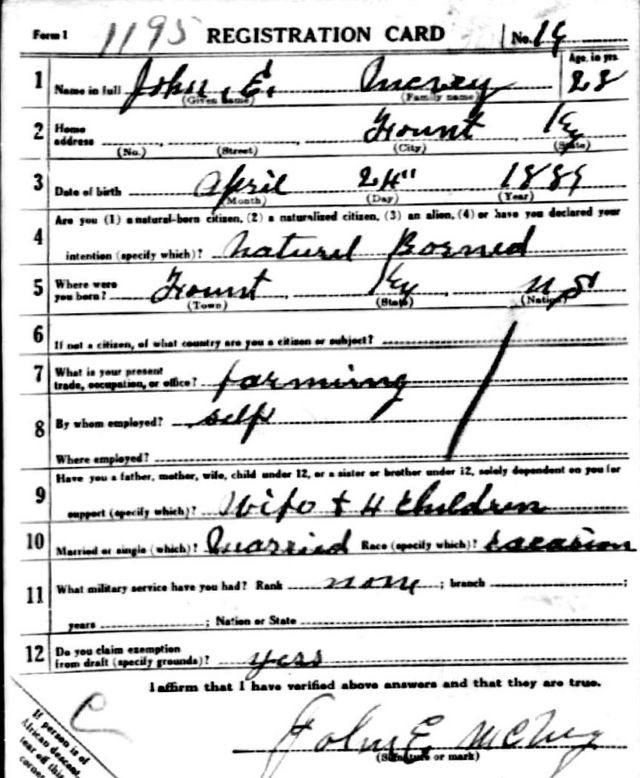 Form 1 1195 REGISTRATION CARD No. 19
1 Name in full John E. McVey Age, in yrs. 28
(Given name) (Family name)
2 Home address Fount Ky
(No.) (Street) (City) (State)
3 Date of birth April 24" 1889
(Month) (Day) (Year)
Are you (1) a natural-born citizen, (2) a naturalized citizen, (3) an alien, (4) or have you declared your
4 intention (specify which)? Natural Borned
5 Where were you born? Fount Ky U S
(Town) (State) (Nation)
6 If not a citizen, of what country are you a citizen or subject?
7 What is your present trade, occupation, or office? farming
8 By whom employed? self
Where employed?
Have you a father, mother, wife, child under 12, or a sister or brother under 12, solely dependent on you for
9 support (specify which)? Wife + 4 children
10 Married or single (which)? Married Race (specify which)?
11 What military service have you had? Rank none ; branch ;
years ; Nation or State
12 Do you claim exemption from draft (specify grounds)? yess
I affirm that I have verified above answers and that they are true.
C
John E McVey
(Signature or mark)
If person is of
African descent,
tear off this
corner